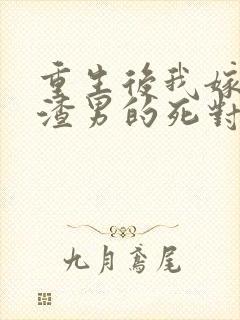 重生後我嫁
渣男的死對
九月鳶尾